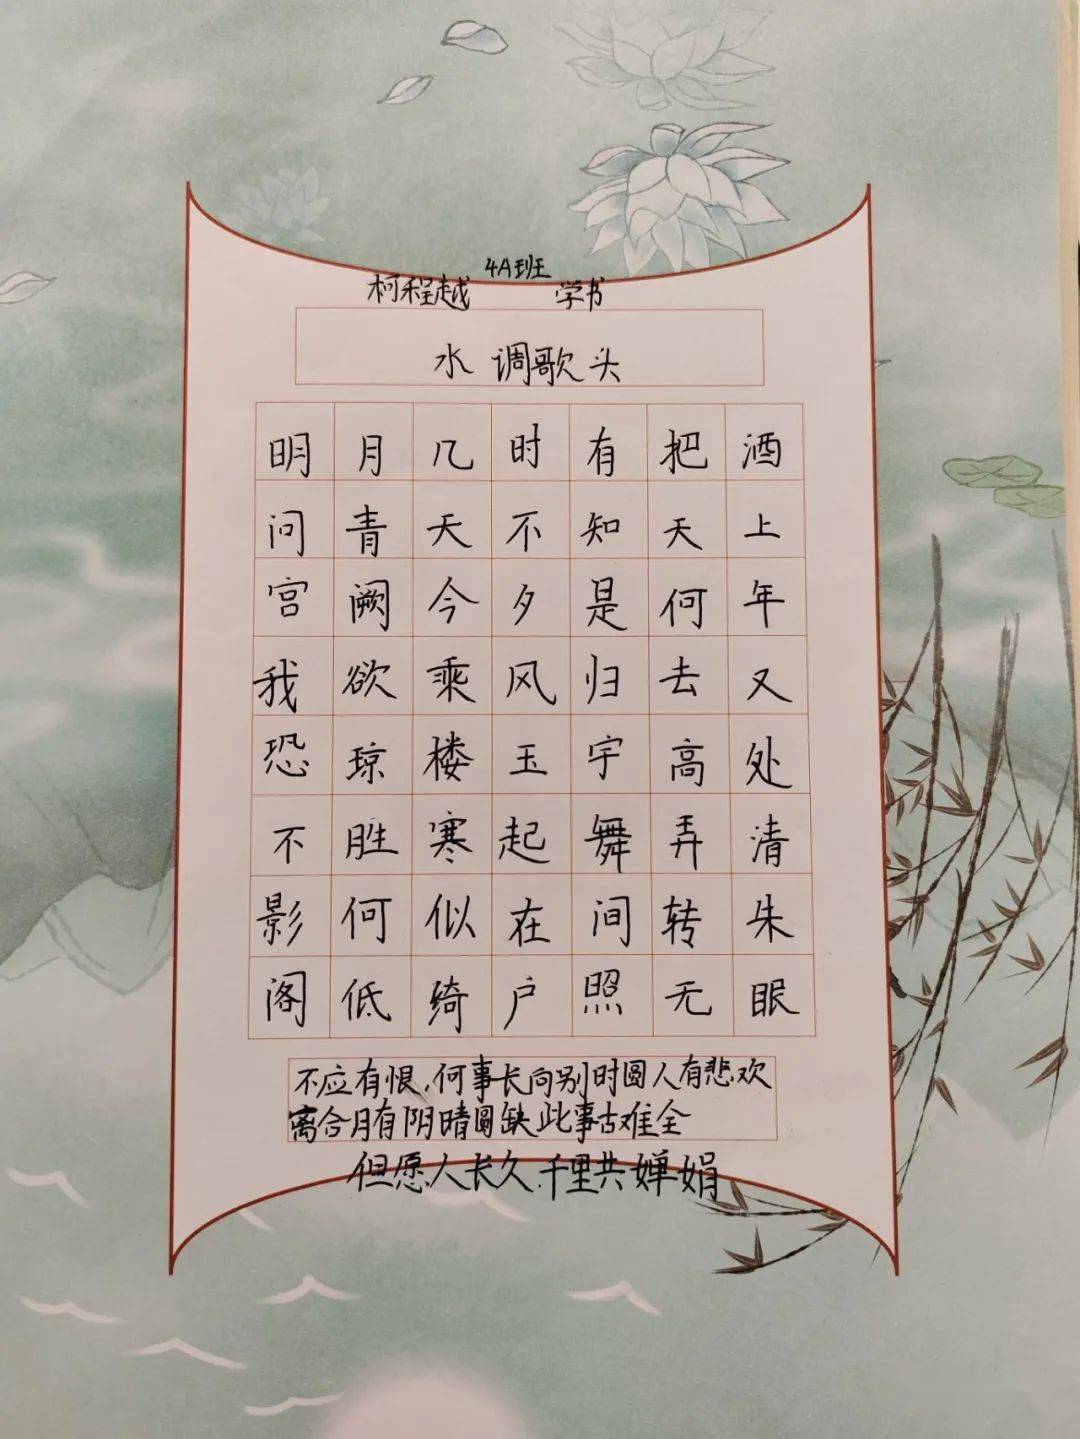 4A班
柯程越 学书
水调歌头
明月几时有把酒
问青天不知天上
宫阙今夕是何年
我欲乘风归去又
恐琼楼玉宇高处
不胜寒起舞弄清
影何似在间转朱
阁低绮户照无眠
不应有恨,何事长向别时圆人有悲欢
离合月有阴晴圆缺此事古难全
但愿人长久.千里共婵娟